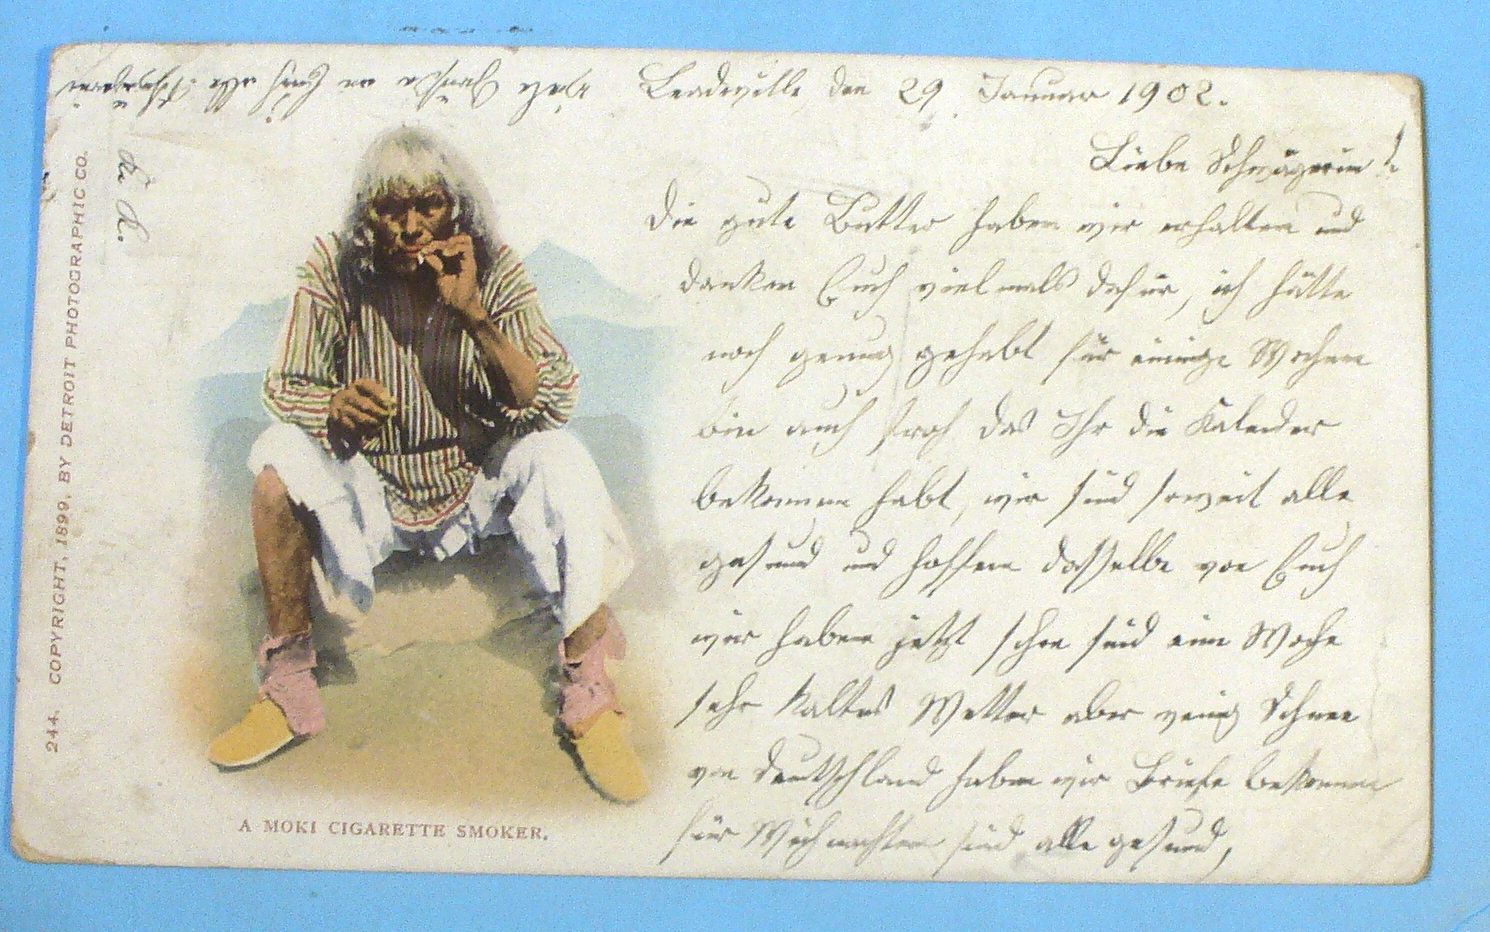 Leadville den 29 Januar 1902.
Liebe Schwägerin!
Die gute Butter haben wir erhalten und
danken Euch vielmals dafür, ich hätte
noch genug gehabt für einige Wochen
bin auch froh das Ihr die Kalender
bekommen habt, wir sind soweit alle
gesund und hoffen dasselbe von Euch
wir haben jetzt schon seid eine Woche
sehr kaltes Wetter aber wenig Schnee
von Deutschland haben wir Briefe bekommen
für Weihnachten sind alle gesund,
244. COPYRIGHT, 1899, BY DETROIT PHOTOGRAPHIC CO.
A MOKI CIGARETTE SMOKER.